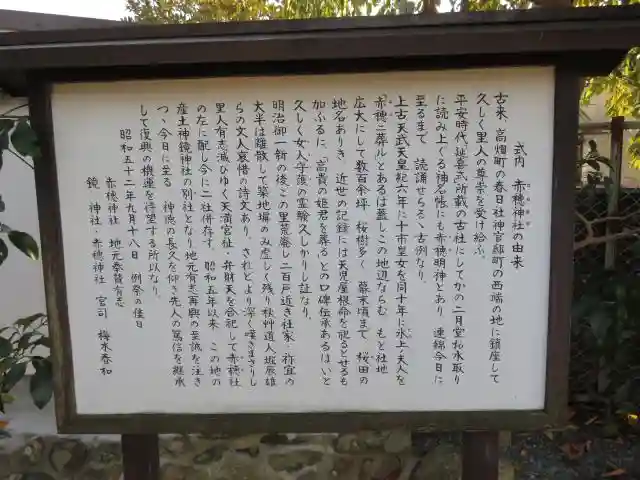 式内 赤穂神社の由来
古来、高畑町の春日社神官邸町の西端の地に鎮座して
久しく里人の尊崇を受け給ふ。
平安時代延喜式所載の古社にしてかの二月堂お水取り
に読み上ぐる神名帳にも赤穂明神とあり 連綿今日に
至るまで 読誦せらるゝ古例なり。
上古天武天皇紀六年に十市皇女を同十年に氷上夫人を
「赤穂ニ葬ル」とあるは蓋しこの地辺ならむ もと社地
広大にして数百余坪 桜樹多く 幕末頃まで 桜田の
地名ありき 近世の記録には天児屋根命を祀るとせるも
加ふるに、「高貴の姫君を葬る」との口碑伝承あるはいと
久しく女人守護の霊験久しかりし証なり。
明治御一新の後この里荒廃し二百戸近き社家・祢宜の
大半は離散して築地塀のみ虚しく残り秋艸道人堀辰雄
らの文人哀惜の詩文あり、されどより深く嘆きまさりし
里人有志滅びゆく天満宮社・弁財天を合祀して赤穂社
の左に配し今に二社併存す 昭和五年以来 この地の
産土神鏡神社の別社となり地元有志再興の至誠を注ぎ
つゝ今日に至る 神徳の長久を仰ぎ先人の篤信を継承
して復興の機運を待望する所以なり、
昭和五十二年九月十八日 例祭の佳日
赤穂神社 地元奉賛有志
鏡 神社・赤穂神社 宮司 梅木春和